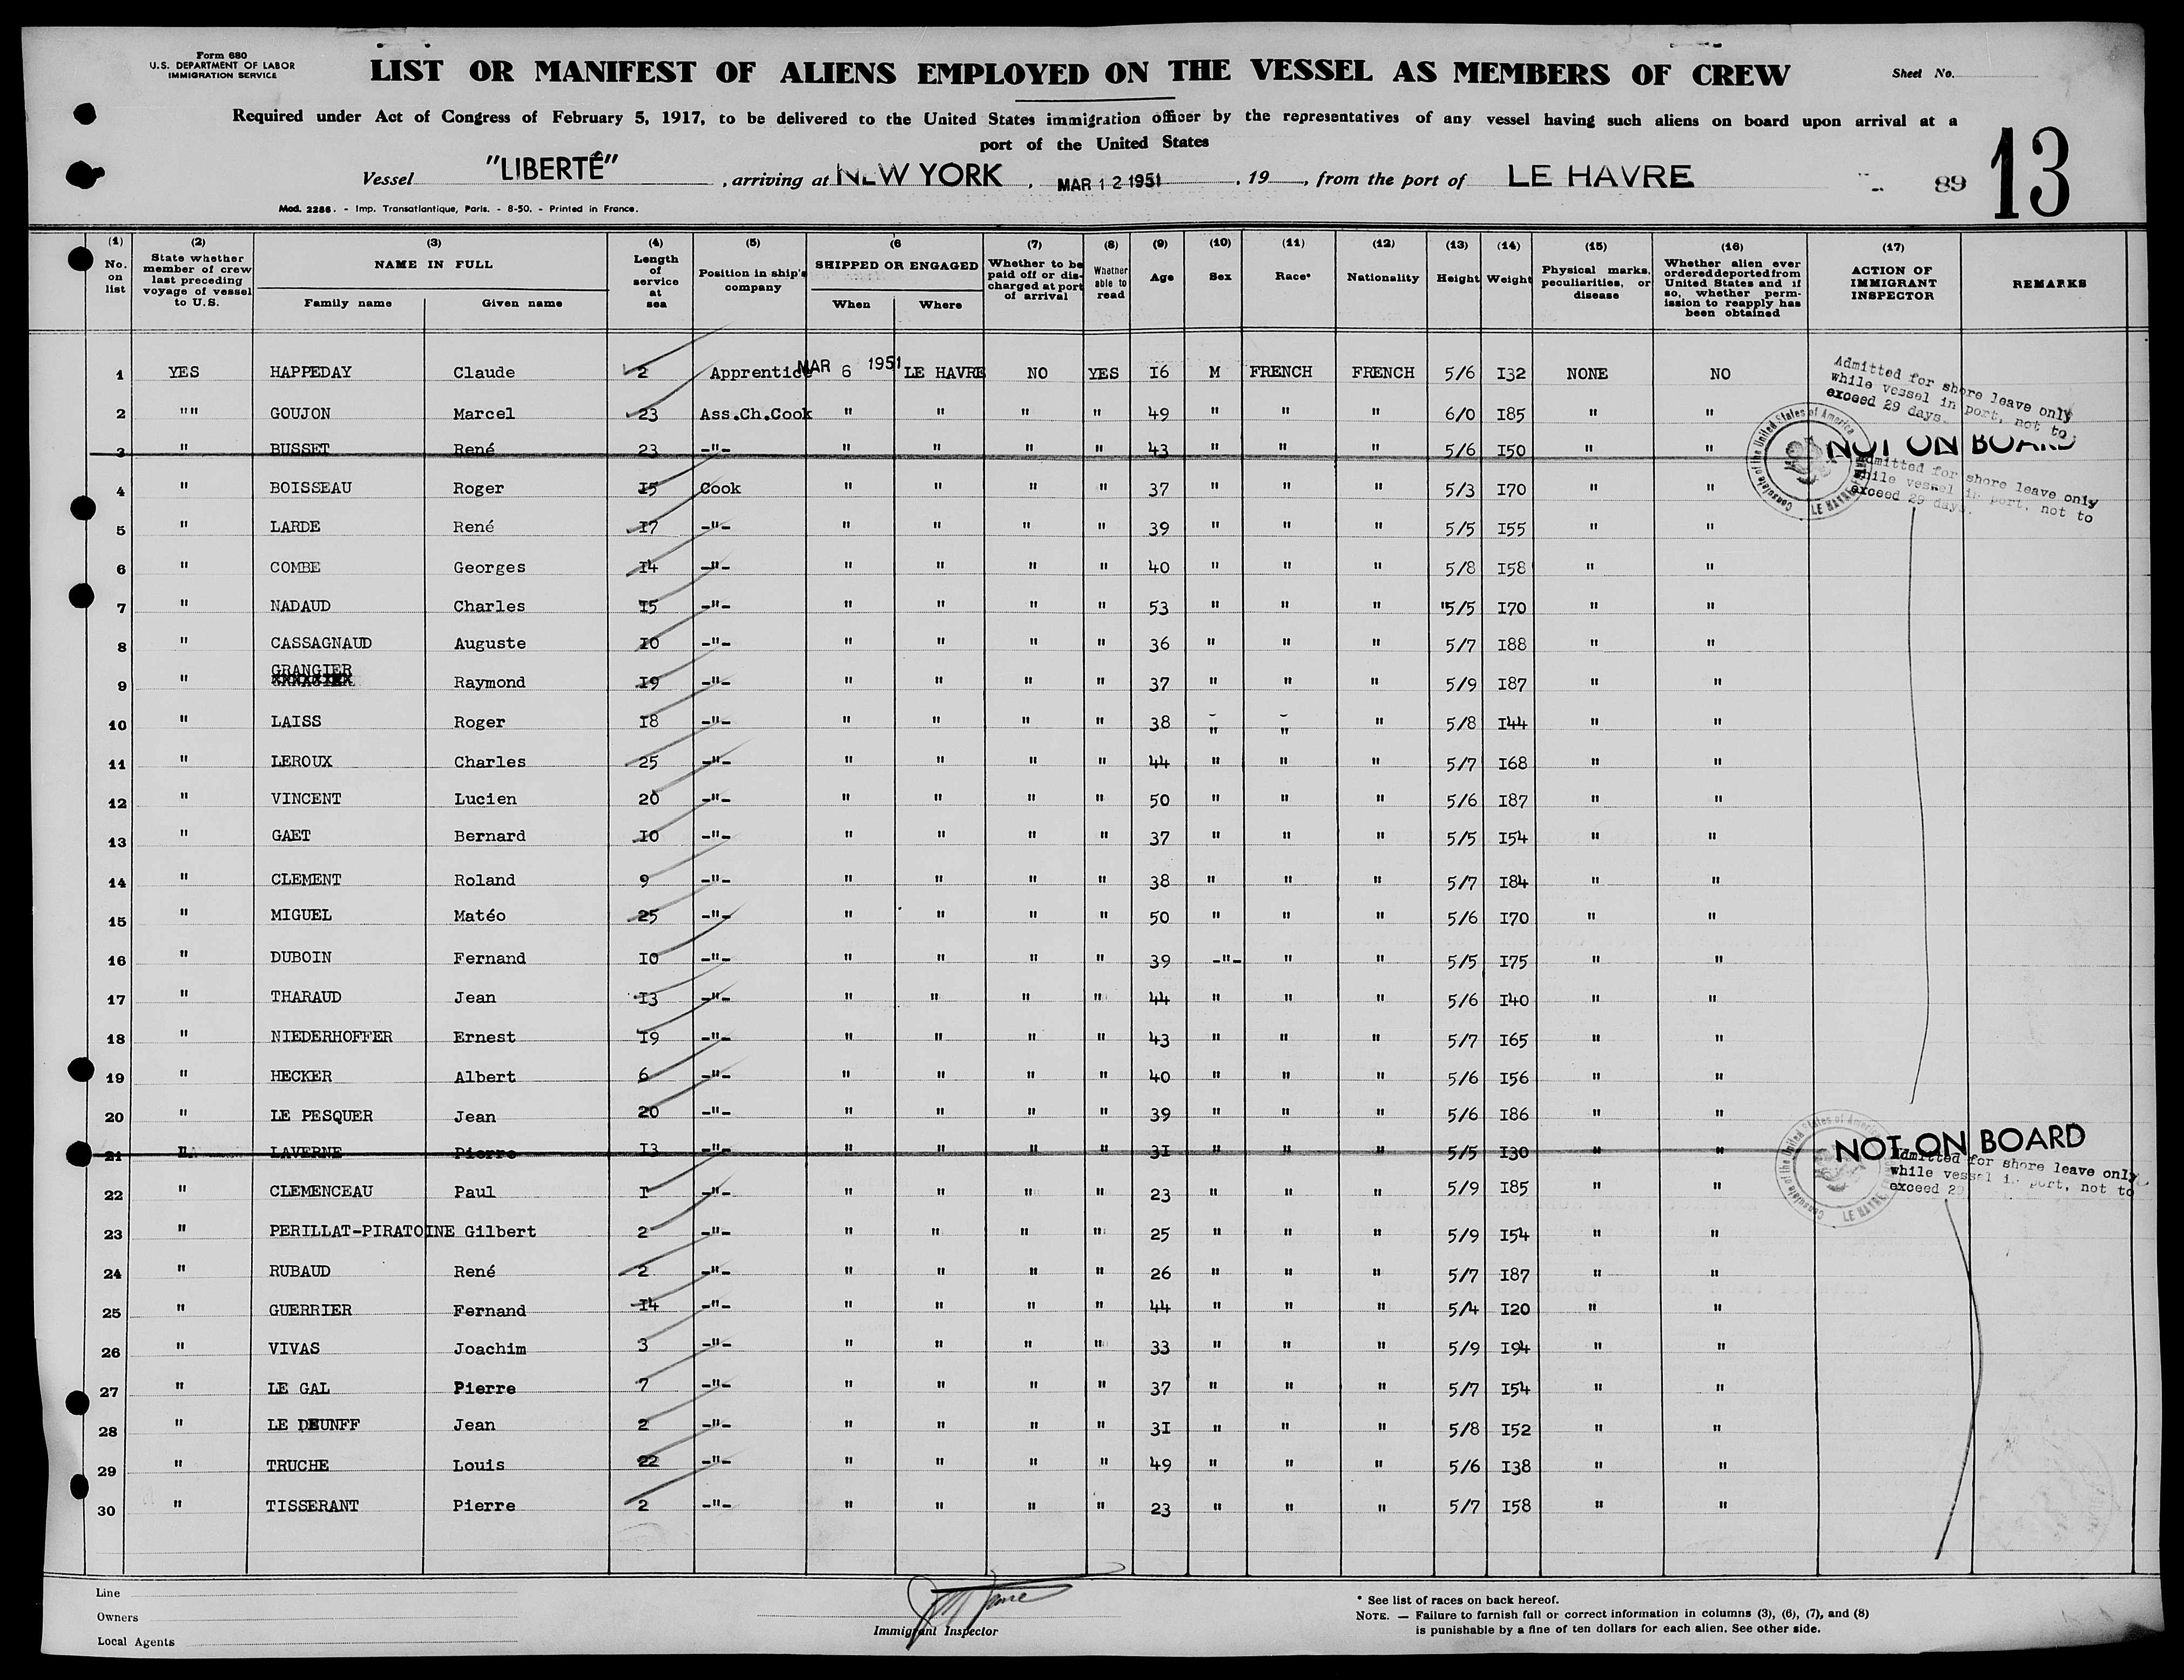 Form 680
U.S. DEPARTMENT OF LABOR
IMMIGRATION SERVICE
LIST OR MANIFEST OF ALIENS EMPLOYED ON THE VESSEL AS MEMBERS OF CREW
Sheet No.
Required under Act of Congress of February 5, 1917, to be delivered to the United States immigration officer by the representatives of any vessel having such aliens on board upon arrival at a
port of the United States
13
Vessel "LIBERTÉ", arriving at NEW YORK, MAR 12 1951, 19, from the port of LE HAVRE 89
Mod. 2286. - Imp. Transatlantique, Paris. - 8-50. - Printed in France.
(1) No. on list
(2) State whether member of crew last preceding voyage of vessel to U.S.
(3) NAME IN FULL Family name Given name
(4) Length of service at sea
(5) Position in ship's company
(6 SHIPPED OR ENGAGED When Where
(7) Whether to be paid off or discharged at port of arrival
(8) Whether able to read
(9) Age
(10) Sex
(11) Race*
(12) Nationality
(13) Height
(14) Weight
(15) Physical marks, peculiarities, or disease
(16) Whether alien ever ordered deported from United States and if so, whether permission to reapply has been obtained
(17) ACTION OF IMMIGRANT INSPECTOR
REMARKS
1 YES HAPPEDAY Claude 2 Apprentice MAR 6 1951 LE HAVRE NO YES I6 M FRENCH FRENCH 5/6 I32 NONE NO
Admitted for shore leave only while vessel in port, not to exceed 29 days.
2 "" GOUJON Marcel 23 Ass.Ch.Cook " " " " 49 " " " 6/0 I85 " "
3 " BUSSET René 23 -"- " " " " 43 " " " 5/6 I50 " " NOT ON BOARD
Consulate of the United States of America LE HAVRE
Admitted for shore leave only while vessel in port, not to exceed 29 days.
4 " BOISSEAU Roger I5 Cook " " " " 37 " " " 5/3 I70 " "
5 " LARDE René I7 -"- " " " " 39 " " " 5/5 I55 " "
6 " COMBE Georges I4 -"- " " " " 40 " " " 5/8 I58 " "
7 " NADAUD Charles I5 -"- " " " " 53 " " " "5/5 I70 " "
8 " CASSAGNAUD Auguste I0 -"- " " " " 36 " " " 5/7 I88 " "
9 " GRANGIER Raymond I9 -"- " " " " 37 " " " 5/9 I87 " "
10 " LAISS Roger I8 -"- " " " " 38 " " " 5/8 I44 " "
11 " LEROUX Charles 25 -"- " " " " 44 " " " 5/7 I68 " "
12 " VINCENT Lucien 20 -"- " " " " 50 " " " 5/6 I87 " "
13 " GAET Bernard I0 -"- " " " " 37 " " " 5/5 I54 " "
14 " CLEMENT Roland 9 -"- " " " " 38 " " " 5/7 I84 " "
15 " MIGUEL Matéo 25 -"- " " " " 50 " " " 5/6 I70 " "
16 " DUBOIN Fernand I0 -"- " " " " 39 -"- " " 5/5 I75 " "
17 " THARAUD Jean I3 -"- " " " " 44 " " " 5/6 I40 " "
18 " NIEDERHOFFER Ernest I9 -"- " " " " 43 " " " 5/7 I65 " "
19 " HECKER Albert 6 -"- " " " " 40 " " " 5/6 I56 " "
20 " LE PESQUER Jean 20 -"- " " " " 39 " " " 5/6 I86 " "
21 " LAVERNE Pierre I3 -"- " " " " 3I " " " 5/5 I30 " " NOT ON BOARD
Consulate of the United States of America LE HAVRE
Admitted for shore leave only while vessel in port, not to exceed 29
22 " CLEMENCEAU Paul I -"- " " " " 23 " " " 5/9 I85 " "
23 " PERILLAT-PIRATOINE Gilbert 2 -"- " " " " 25 " " " 5/9 I54 " "
24 " RUBAUD René 2 -"- " " " " 26 " " " 5/7 I87 " "
25 " GUERRIER Fernand I4 -"- " " " " 44 " " " 5/4 I20 " "
26 " VIVAS Joachim 3 -"- " " " " 33 " " " 5/9 I94 " "
27 " LE GAL Pierre 7 -"- " " " " 37 " " " 5/7 I54 " "
28 " LE DEUNFF Jean 2 -"- " " " " 3I " " " 5/8 I52 " "
29 " TRUCHE Louis 22 -"- " " " " 49 " " " 5/6 I38 " "
30 " TISSERANT Pierre 2 -"- " " " " 23 " " " 5/7 I58 " "
Line
Owners
Local Agents
Immigrant Inspector
* See list of races on back hereof.
NOTE. — Failure to furnish full or correct information in columns (3), (6), (7), and (8)
is punishable by a fine of ten dollars for each alien. See other side.